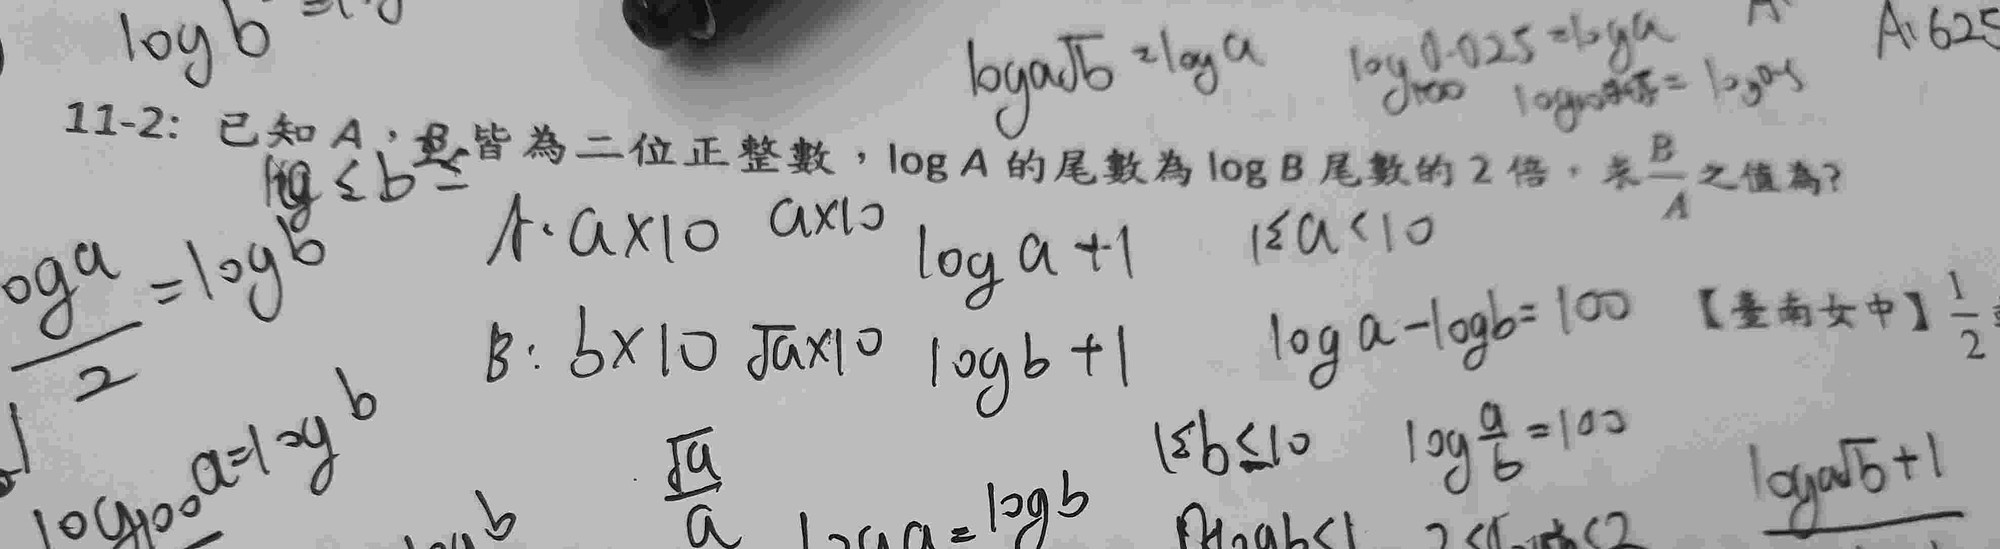 log b
log a√b = log a
log 0.025 = log a
A: 625
11-2: 已知 A，B 皆為二位正整數，log A 的尾數為 log B 尾數的 2 倍，求 B/A 之值為?
≤ b ≤
A: a×10 a×10 log a + 1 1≤a<10
log a / 2 = log b
B: b×10 √a×10 log b + 1 log a - log b = 100 【臺南女中】 1/2
log₁₀₀ a = log b
√a / a
1≤b≤10 log a/b = 100
log a√b + 1
log b